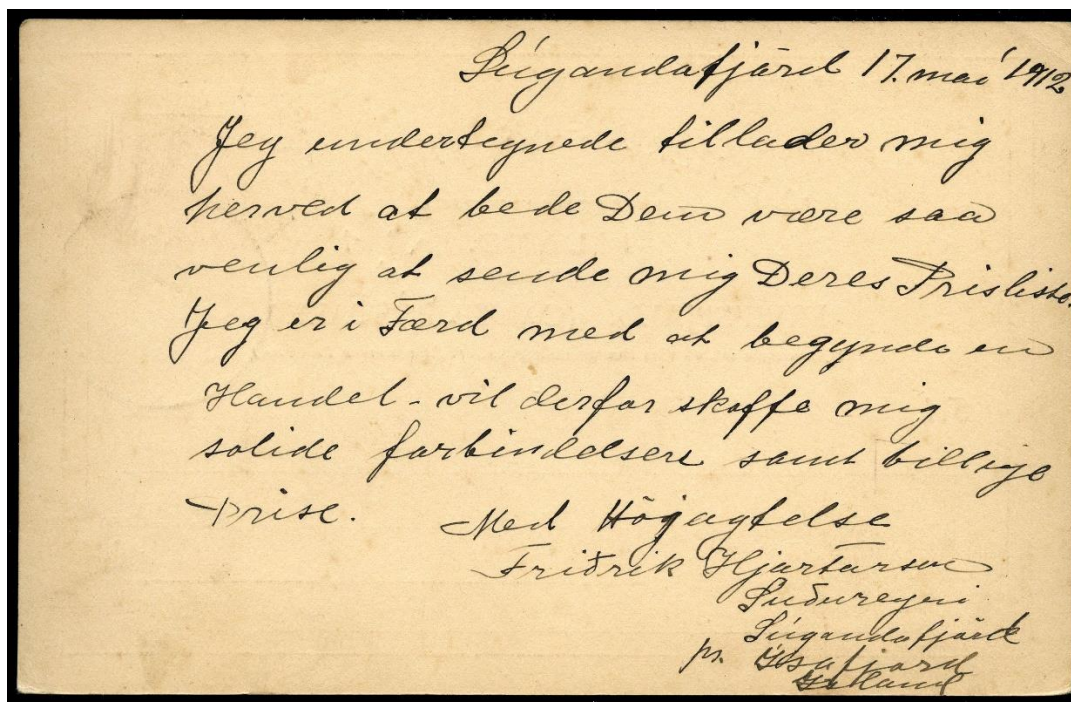 Súgandafjärd 17. mai 1912
Jeg undertegnede tillader mig
herved at bede Dem være saa
venlig at sende mig Deres Prisliste.
Jeg er i Færd med at begynde en
Handel - vil derfor skaffe mig
solide forbindelser samt billige
Prise.
Med Högagtelse
Friðrik Hjartarson
Suðureyri
Súgandafjärd
pr. Isafjord
Island